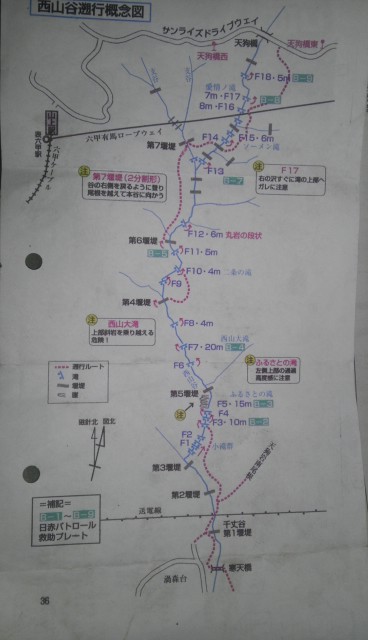 西山谷遡行概念図
サンライズドライブウェイ
天狗橋
天狗橋東
天狗橋西
F18・5m
愛情ノ滝
7m・F17
8m・F16
山上駅
六甲有馬ロープウェイ
F14
F15・6m
ソーメン滝
第7堰堤
F13
注
第7堰堤(2分割形)
谷の右側を戻るように登り
尾根を越えて本谷に向かう
注
F17
右の沢すぐに滝の上部へ
ガレに注意
F12・6m
丸岩の段状
第6堰堤
F11・5m
F10・4m
二条の滝
F9
第4堰堤
注
西山大滝
上部斜岩を乗り越える
危険!
F8・4m
F7・20m
西山大滝
F6
注
ふるさとの滝
左側上部の通過
高度感に注意
遡行ルート
滝
堰堤
第5堰堤
ふるさとの滝
F5・15m
注
F4
F3・10m
磁針北
図北
F2
F1
第3堰堤
第2堰堤
=補記=
日赤パトロール
救助プレート
送電線
千丈谷
第1堰堤
渦森台
寒天橋
36